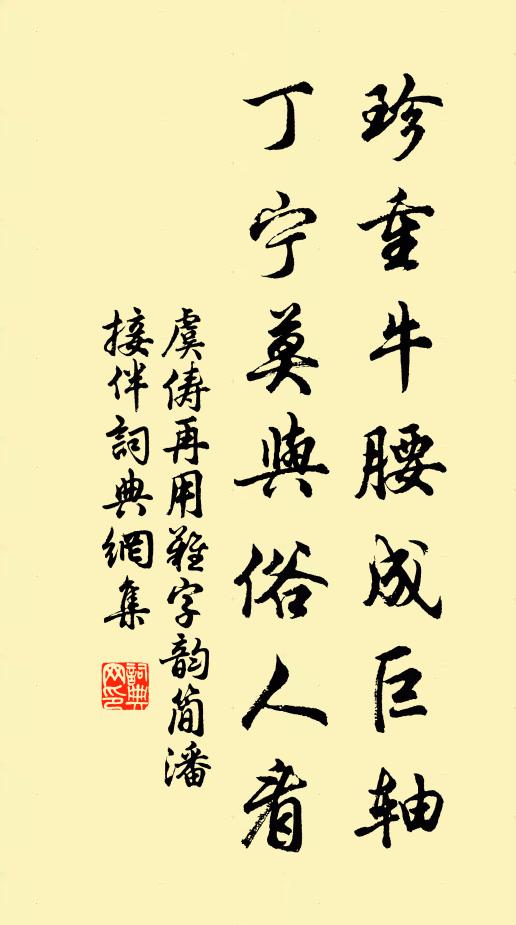 珍重牛腰成巨軸
丁宁莫與俗人看
虞俦再用難字韵简潘
接伴詞典網集
詞典網印